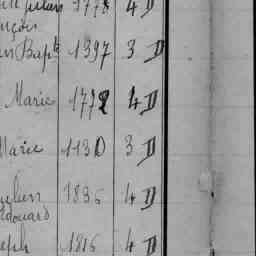 Julien 1778 4 D
ançois
n Bapte 1397 3 D
Marie 1772 4 D
Marie 1130 3 D
ulien 1836 4 D
Edouard
seph 1816 4 D